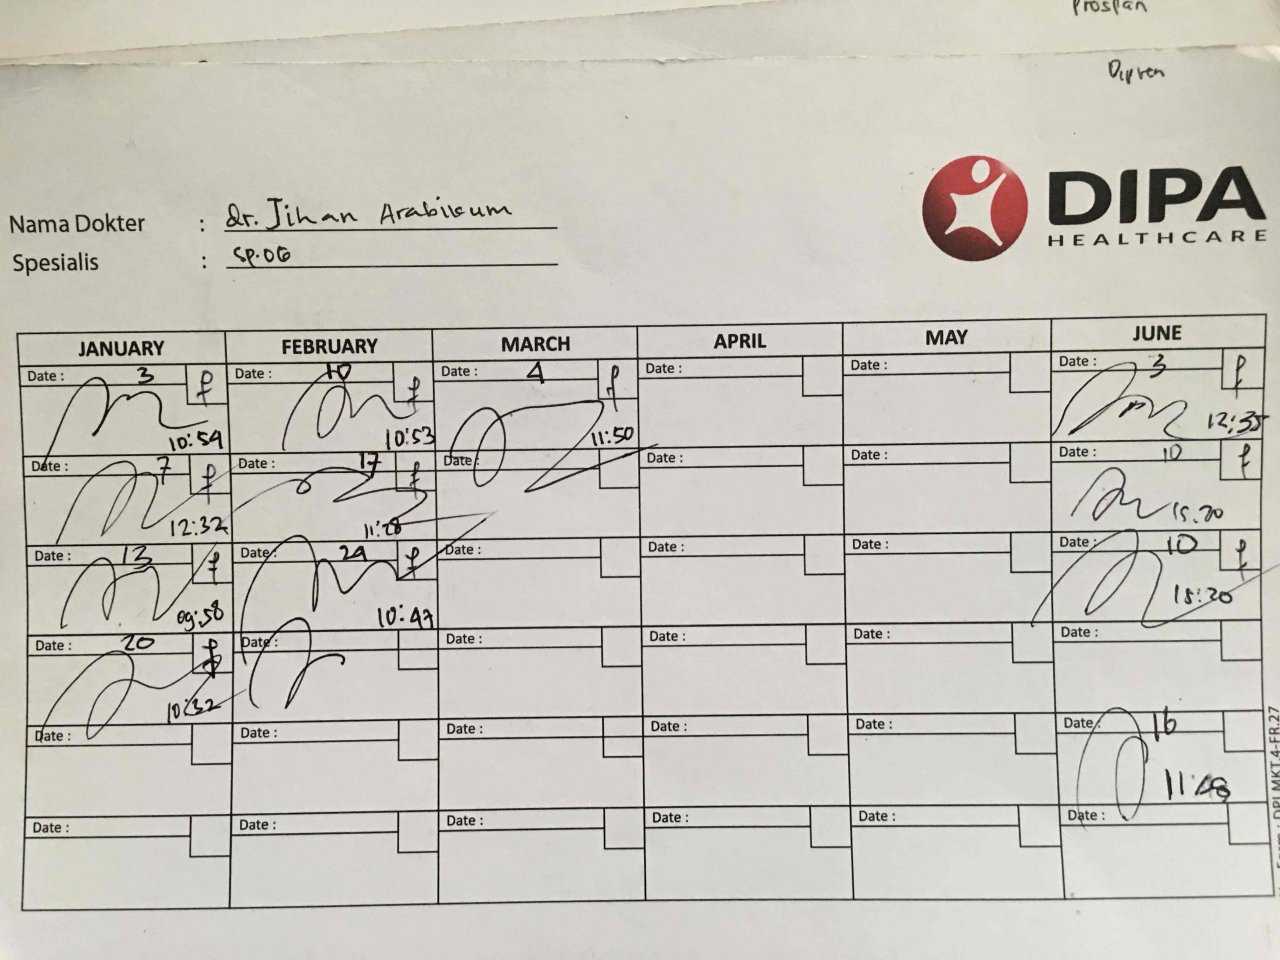 Prospan
Dipren
DIPA
HEALTHCARE
Nama Dokter : dr. Jihan
Spesialis : SP.OG
JANUARY FEBRUARY MARCH APRIL MAY JUNE
Date : 3 f Date : 10 f Date : 4 f Date : Date : Date : 3 f
10:54 10:53 11:50 12:35
Date : 7 f Date : 17 f Date : Date : Date : Date : 10 f
12:32 11:28 15.20
Date : 13 f Date : 24 f Date : Date : Date : Date : 10 f
09:58 10:47 15:20
Date : 20 f Date : Date : Date : Date : Date :
10:32
Date : Date : Date : Date : Date : Date : 16
11:48
Date : Date : Date : Date : Date : Date :
DPI.MKT.4-FR.27